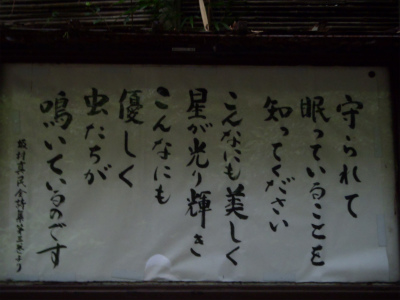 守られて
眠っていることを
知ってください
こんなにも美しく
星が光り輝き
こんなにも
優しく
虫たちが
鳴いているのです
坂村真民全詩集第三巻より